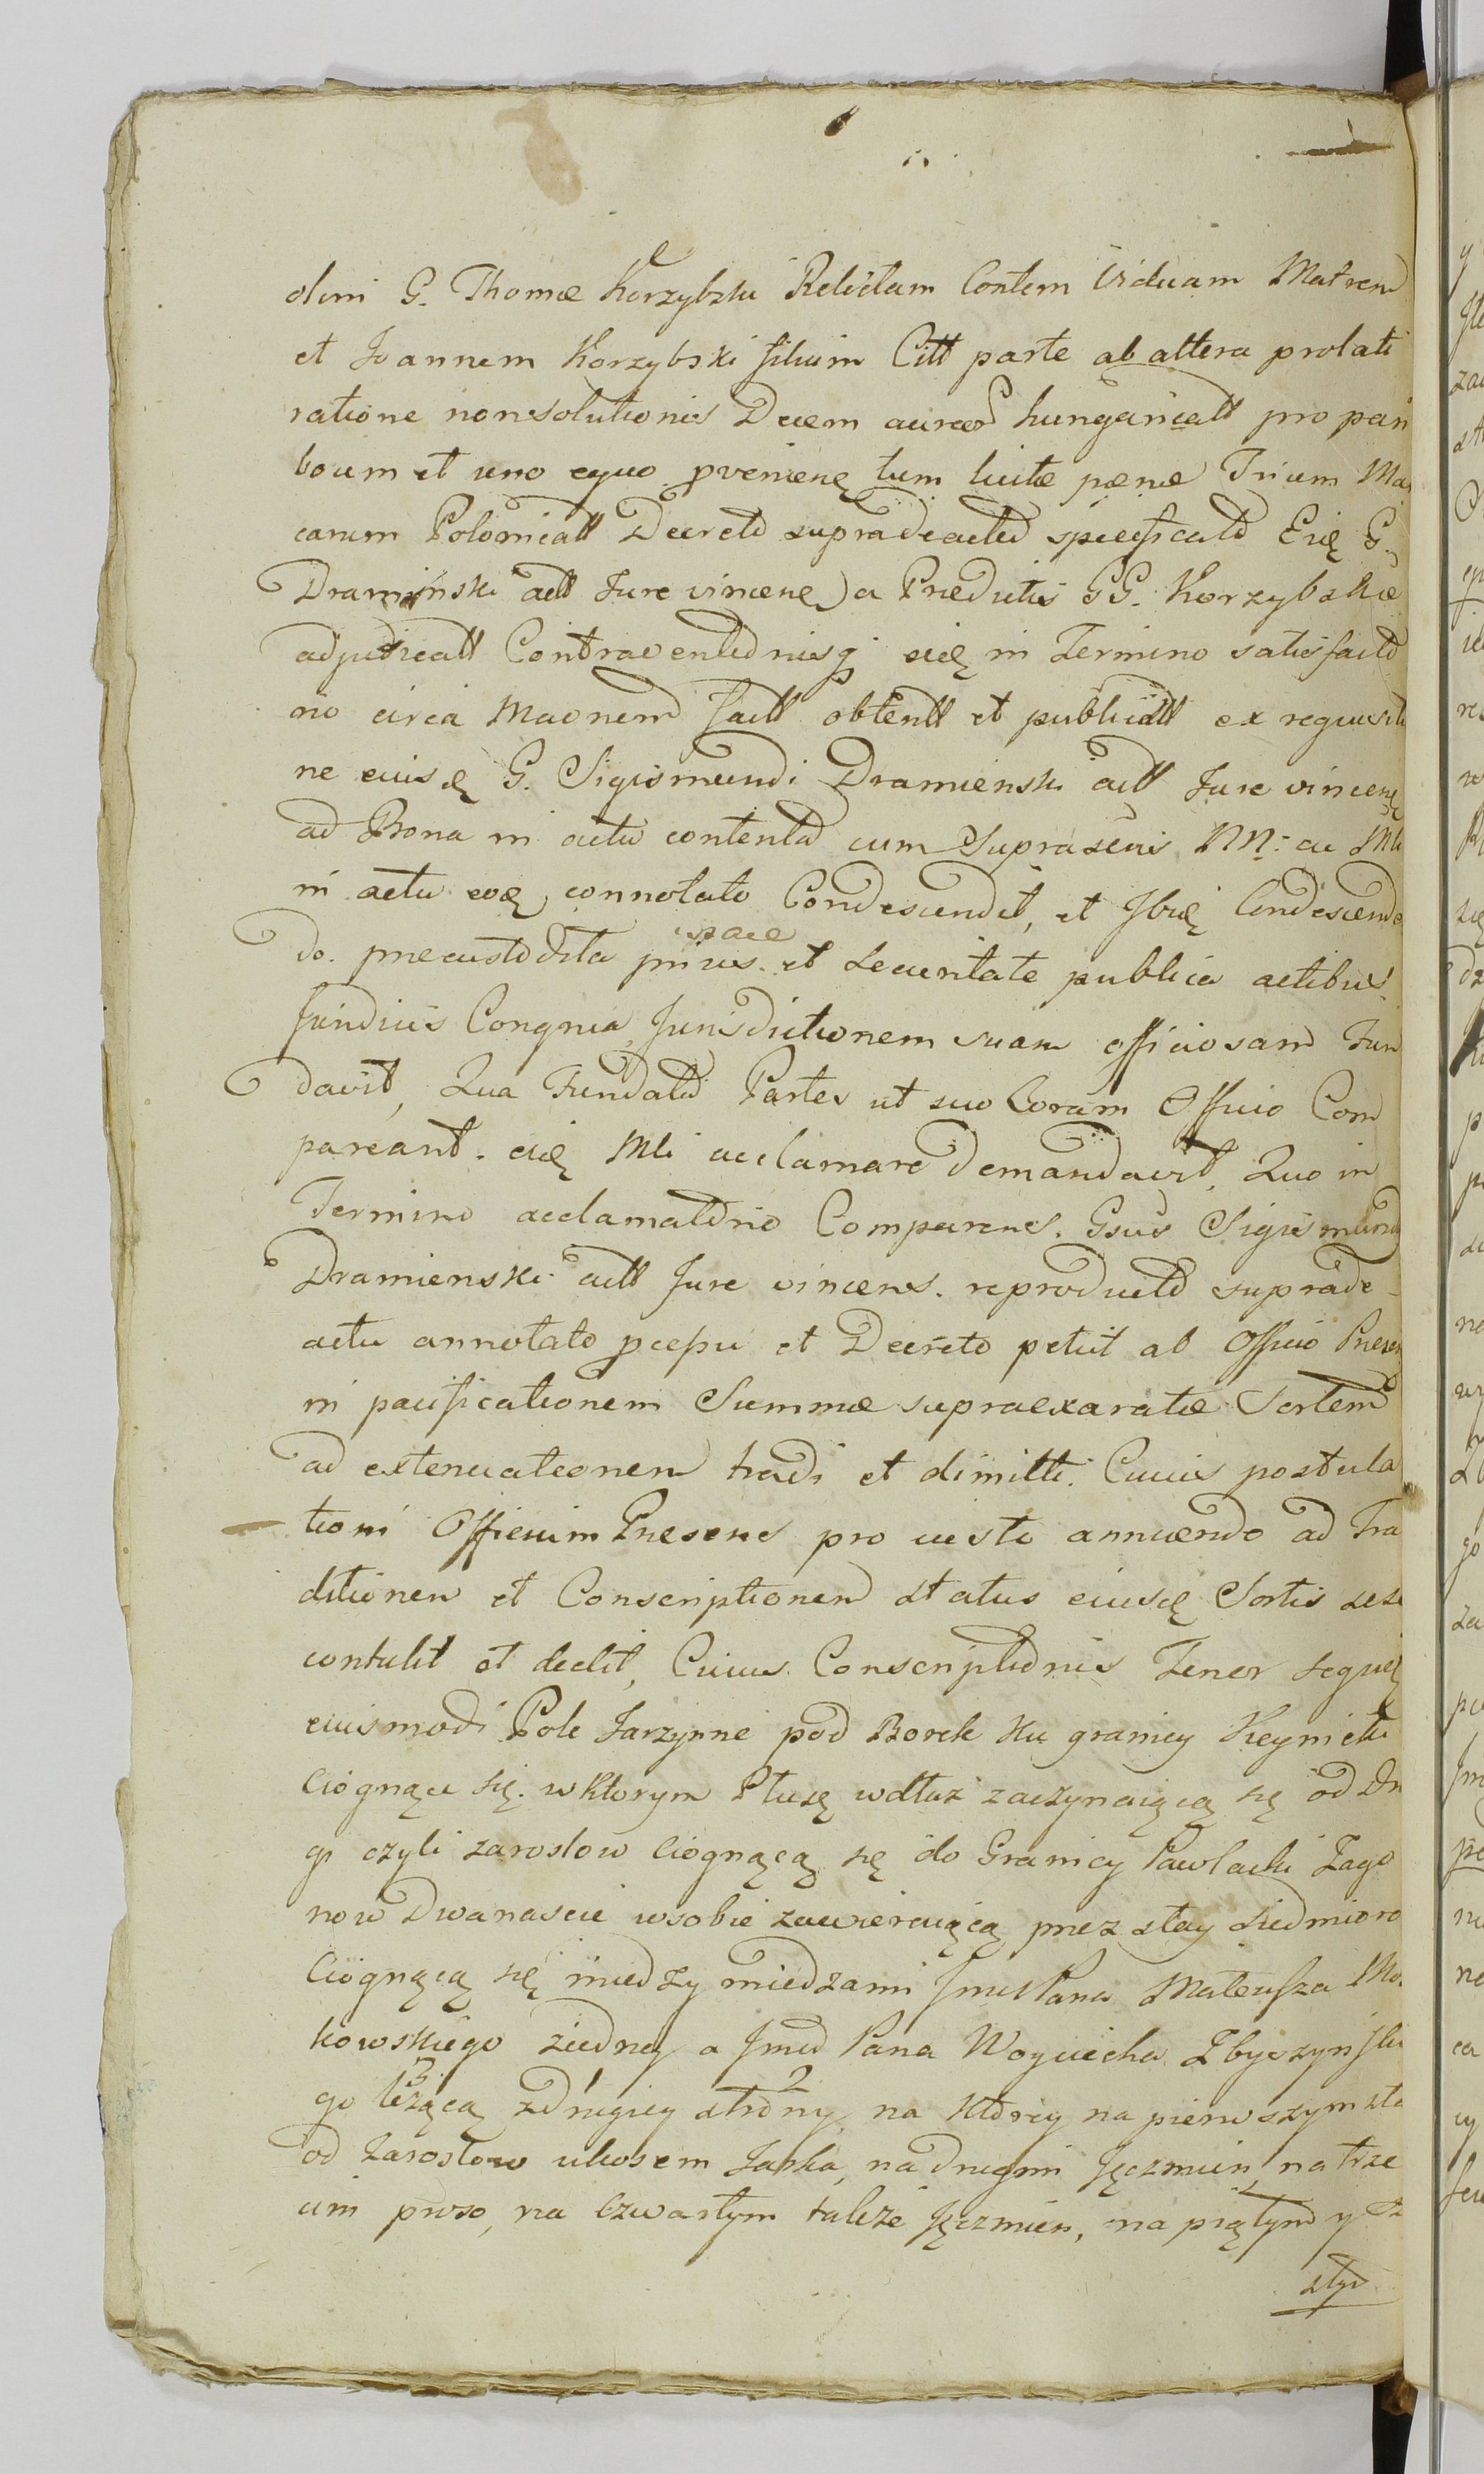 olim G. Thomæ Korzybski Relictam Contem Viduam Matrem
et Joannem Korzybski filium Citt parte ab altera prolati
ratione nonsolutionis Decem aureor hungaricall pro pari
boum et uno equo pvenienę tum luitæ pænæ Trium Mar
carum Polonicall Decreto supradeacto specificato Eię G.
Dramiński actt Jure vincenę a Prædictis GG. Korzybskie
adjudicatt Contraventionisq eię in Termino satisfactio
nio circa Maonem factt obtentt et publicatt ex requisitio
ne eiusę G. Sigismundi Dramienski actt Jure vincenę
ad Bona in actu contenta cum Suprascris NN: ac Mli
in actu eoę connotato Condescendit, et Ibię Condescenden
do. præcustodita prius pace et securitate publica actibus
fundius Congrua Jurisdictionem suam officiosam Fun
davit, Qua Fundata Partes ut suo Coram Officio Com
pareant. eię Mli acclamare demandavit, Quo in
Termino acclamationio Comparens. Gsus Sigismund
Dramienski actt Jure vincens. reproducto suprade
actu annotato pcepu et Decreto petiit ab Officio Præsen
in pacificationem Summæ supraexaratæ Sortem
ad extenuationem tradi et dimitti. Cuius postula
tioni Officium Præsens pro iusto annuendo ad Tra
ditionem et Conscriptionem status eiusę Sortis sese
contulit et dedit, Cuius Conscriptionis Tenor sequię
eiusmodi Pole Jarzynne pod Borek ku granicy Keynicki
Ciognące się. w ktorym Płusę wdłuż zaczynaiącą się od Dro
gi czyli zarosłow Ciognącą się do Granicy Pawlacki Zago
now Dwanascie wsobie zawieraiącą przez stay siedmioro
Ciognącą się miedzy miedzami Jmci Pana Mateusza Mo
kowskiego ziedney a Jmci Pana Woyciecha Zbyszynski
go leżącą 3 zdrugiey 1 strony 2, na ktorey na pierwszym sta
od Zarosłow ukosem Jarka, na drugim Jęczmien, na trze
cim proso, na Czwartym takze Jęczmien, na piątym y sz
stym